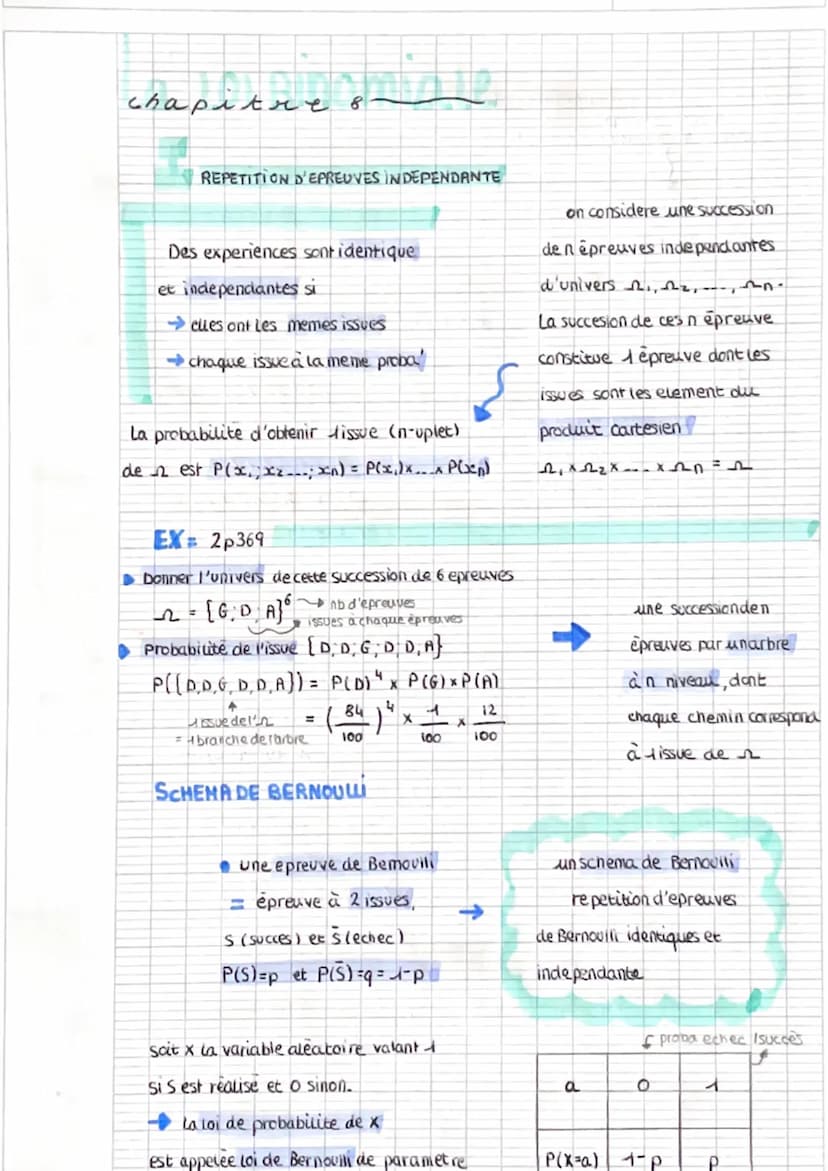 La Loi Binomiale
chapitre 8
I
REPETITION D'EPREUVES INDEPENDANTE
Des experiences sont identique
et independantes si
→ elles ont les memes issues
→ chaque issue à la meme proba'
on considere une succession
de n épreuves independantes
d'univers Ω₁, Ω₂, ..., Ωn.
La succesion de ces n épreuve
constitue 1 épreuve dont les
issues sont les element du
produit cartesien
Ω₁ x Ω₂ x ... x Ωn = Ω
La probabilite d'obtenir 1 issue (n-uplet)
de Ω est P(x₁; x₂ ...; xn) = P(x₁) x ... x P(xn)
EX = 2p369
Donner l'univers de cette succession de 6 epreuves
Ω = {G; D; A}⁶ → nb d'epreuves
issues à chaque épreuves
Probabilité de l'issue {D; D; G; D; D, A}
P({D,D,G,D,D,A}) = P(D)⁴ x P(G) x P(A)
1 issue de l'Ω = (84/100)⁴ x 1/100 x 12/100
= 1 branche de l'arbre
→ une succession den
épreuves par un arbre
à n niveau, dont
chaque chemin correspond
à 1 issue de Ω
SCHEMA DE BERNOULLI
• une epreuve de Bernouili
= épreuve à 2 issues,
S (succes) et S̄ (echec)
P(S)=p et P(S̄)=q = 1-p
→
un schema de Bernouili
repetition d'epreuves
de Bernouili identiques et
independante
soit X la variable aléatoire valant 1
si S est réalisé et 0 sinon.
→ la loi de probabilite de X
est appelée loi de Bernoulli de parametre
proba echec / succès
a 0 1
P(X=a) 1-p p